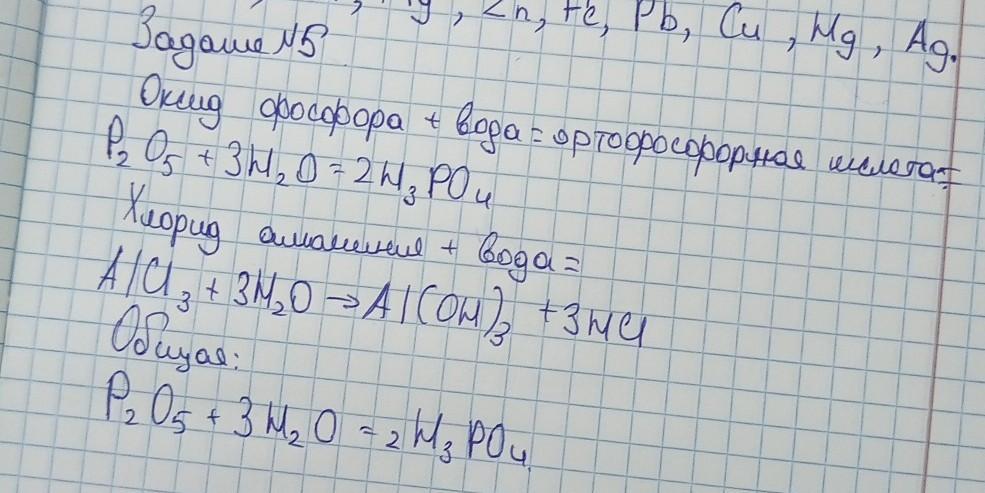 Zn, Fe, Pb, Cu, Mg, Ag.
Задание №5
Оксид фосфора + вода = ортофосфорная кислота=
P₂O₅ + 3H₂O = 2H₃PO₄
Хлорид алюминия + вода =
AlCl₃ + 3H₂O → Al(OH)₃ + 3HCl
Общая:
P₂O₅ + 3H₂O = 2H₃PO₄